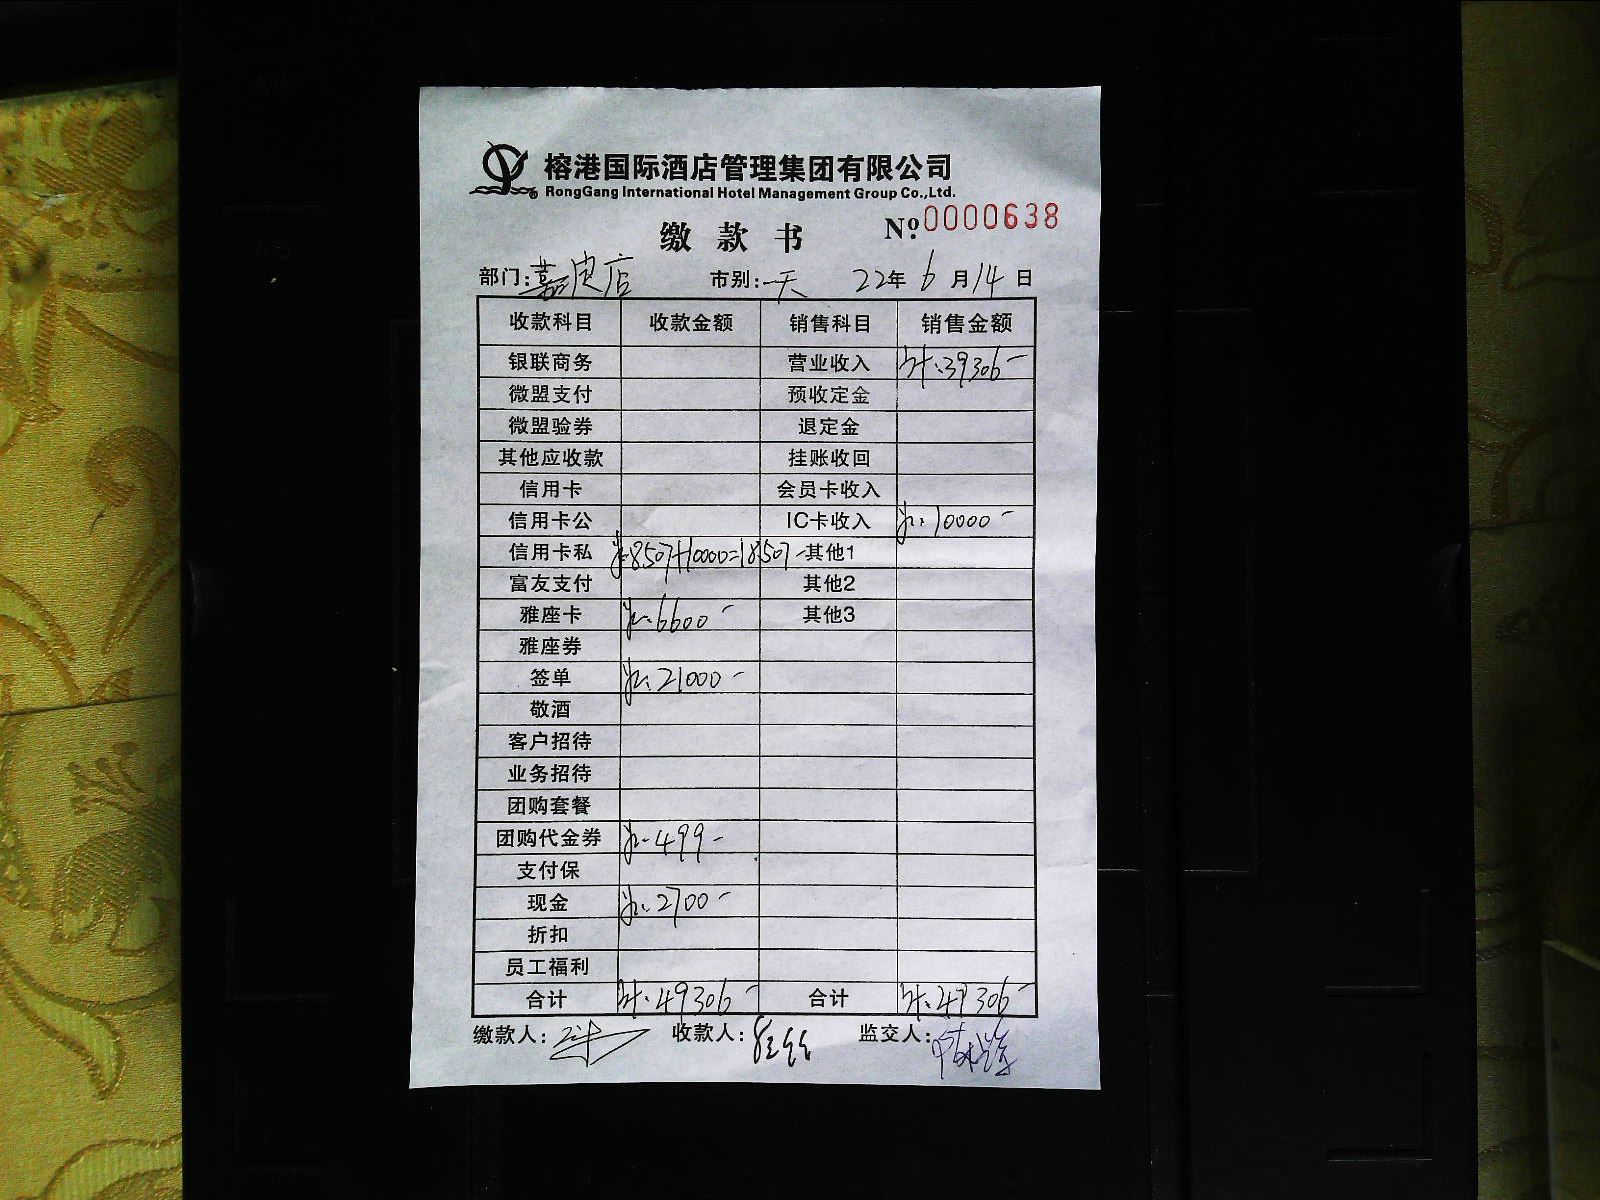 榕港国际酒店管理集团有限公司
RongGang International Hotel Management Group Co.,Ltd.
缴款书 № 0000638
部门: 店 市别: 一天 22年 6月14日
收款科目 收款金额 销售科目 销售金额
银联商务 营业收入 39306-
微盟支付 预收定金
微盟验券 退定金
其他应收款 挂账收回
信用卡 会员卡收入
信用卡公 IC卡收入 10000-
信用卡私 8507+10000=18507- 其他1
富友支付 其他2
雅座卡 6600- 其他3
雅座券
签单 21000-
敬酒
客户招待
业务招待
团购套餐
团购代金券 499-
支付保
现金 2700-
折扣
员工福利
合计 49306- 合计 49306-
缴款人: 收款人: 监交人: